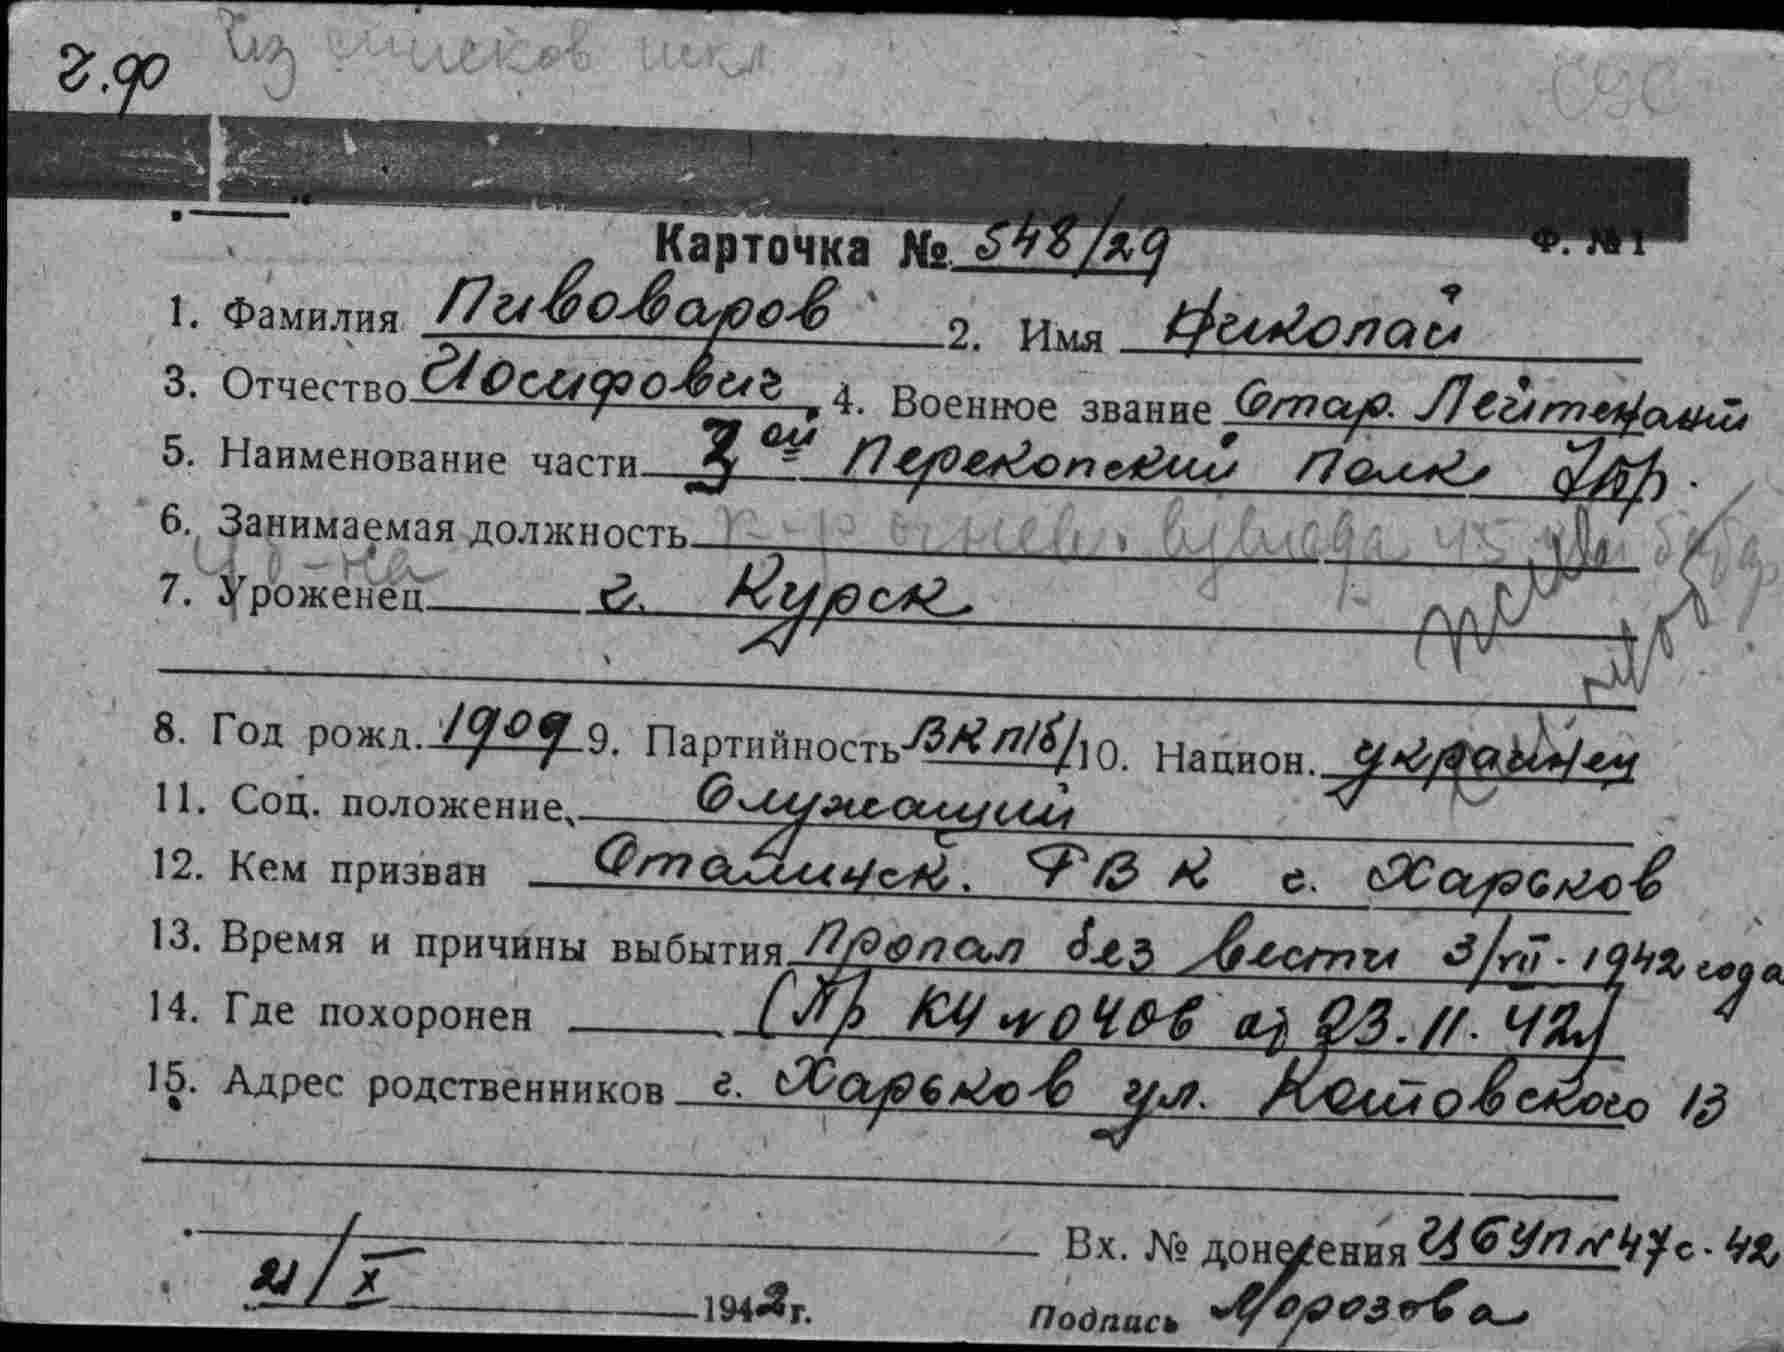 г.ф Из списков искл
СУС
Карточка № 548/29 Ф. № 1
1. Фамилия Пивоваров 2. Имя Николай
3. Отчество Иосифович 4. Военное звание Стар. Лейтенант
5. Наименование части 3 ой Перекопский полк
6. Занимаемая должность взвода 45
7. Уроженец г. Курск
8. Год рожд. 1909 9. Партийность ВКП/б/ 10. Национ. украинец
11. Соц. положение Служащий
12. Кем призван Сталинск. РВК г. Харьков
13. Время и причины выбытия Пропал без вести 3/VII. 1942 года
14. Где похоронен (Пр КУ №0408 от 23.11.42)
15. Адрес родственников г. Харьков ул. Котовского 13
Вх. № донесения ИБУП № 47с. 42
21/X 1942 г. Подпись Морозова